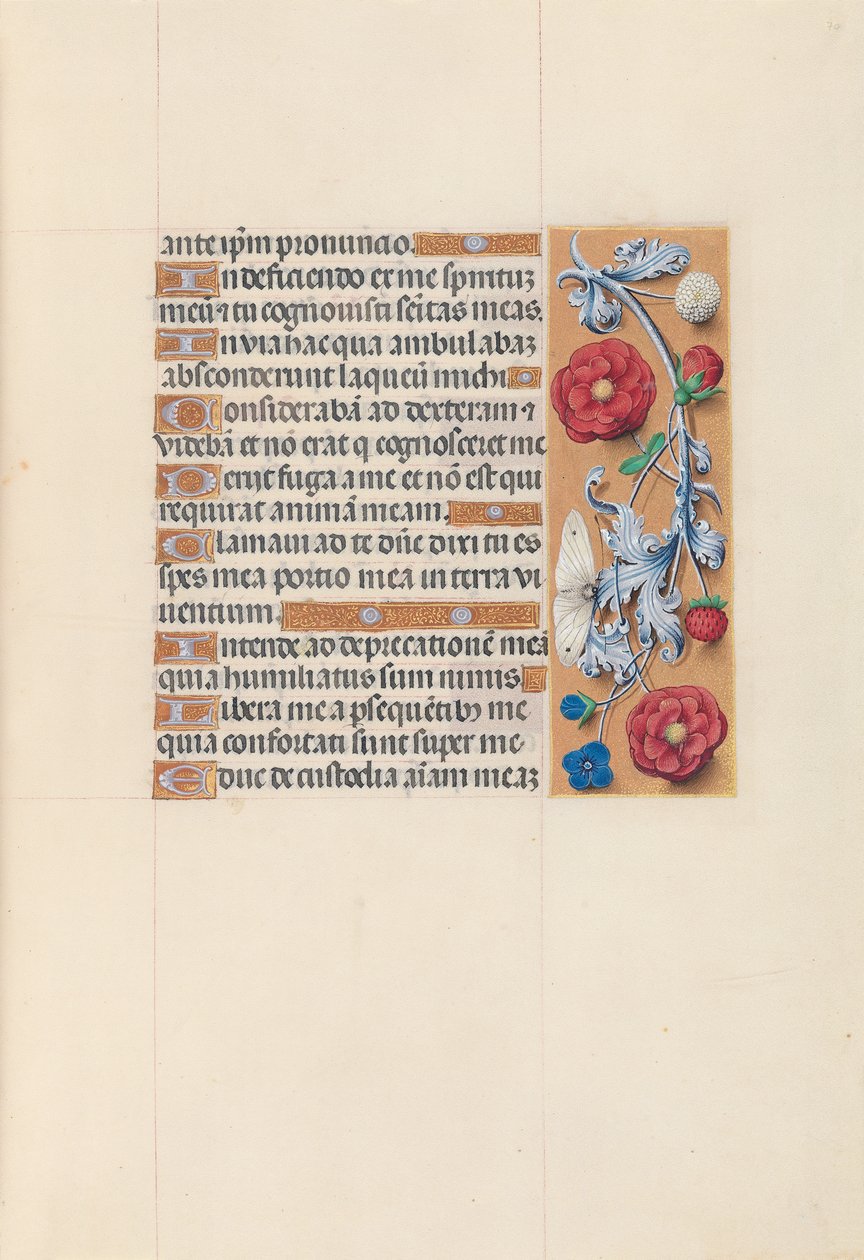 70
ante ip̄m pronuncio.
In deficiendo ex me spirituȝ
meū ⁊ tu cognouisti sēitas meas.
In via hac qua ambulabaȝ
absconderunt laqueū michi
Considerabā ad dexteram ⁊
videbā et nō erat q cognosceret me
Perijt fuga a me et nō est qui
requirat animā meam.
Clamaui ad te dn̄e dixi tu es
spes mea portio mea in terra vi
uentium.
Intende ad deprecationē meā
quia humiliatus sum nimis.
Libera me a ꝑsequētibꝰ me
quia confortati sunt super me
Educ de custodia aīam meaȝ